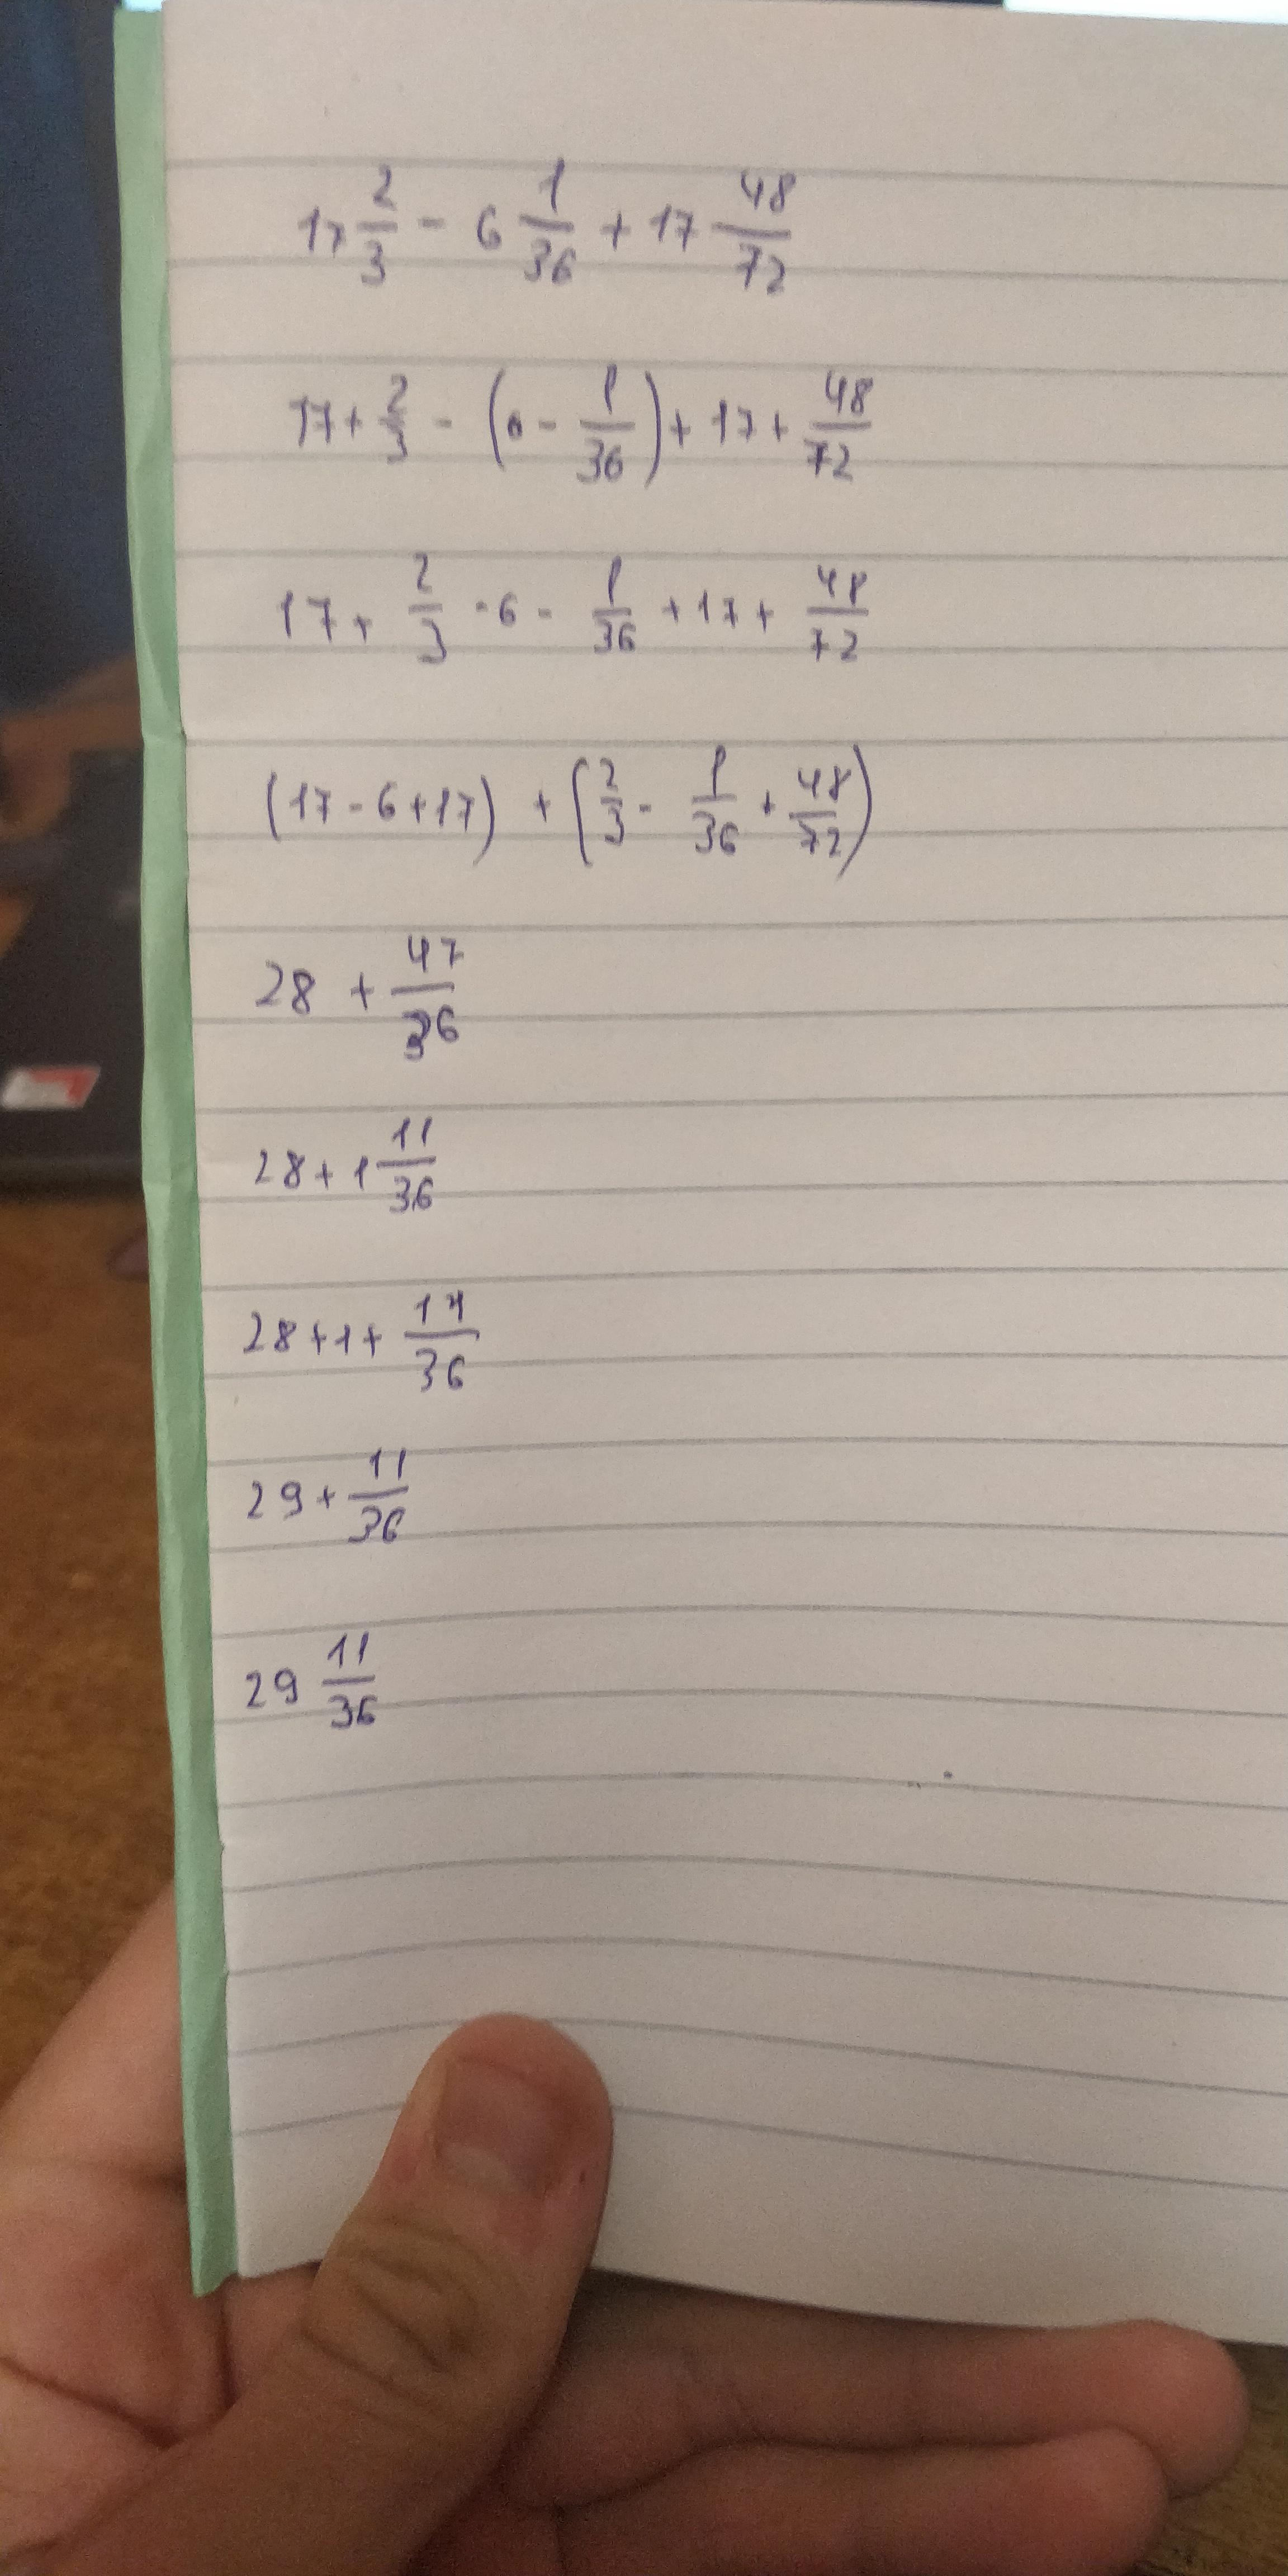 17 2/3 - 6 1/36 + 17 48/72
17 + 2/3 - (6 - 1/36) + 17 + 48/72
17 + 2/3 - 6 - 1/36 + 17 + 48/72
(17 - 6 + 17) + (2/3 - 1/36 + 48/72)
28 + 47/36
28 + 1 11/36
28 + 1 + 11/36
29 + 11/36
29 11/36